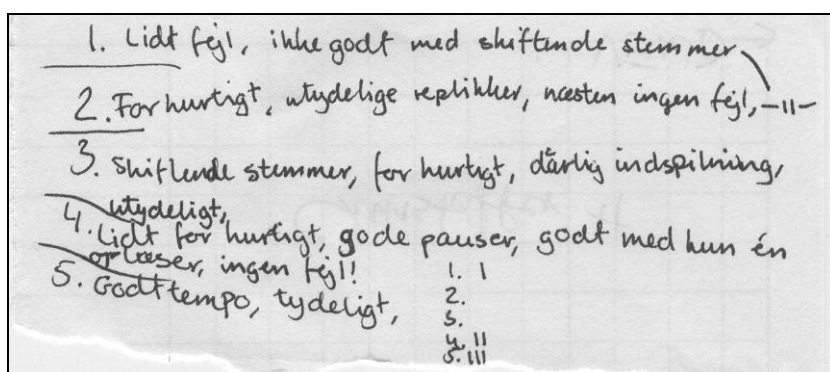 1. Lidt fejl, ikke godt med skiftende stemmer
2. For hurtigt, utydelige replikker, næsten ingen fejl, -11-
3. Skiftende stemmer, for hurtigt, dårlig indspilning,
utydeligt,
4. Lidt for hurtigt, gode pauser, godt med kun én
oplæser, ingen fejl!
5. Godt tempo, tydeligt,
1. I
2.
3.
4. II
5. III